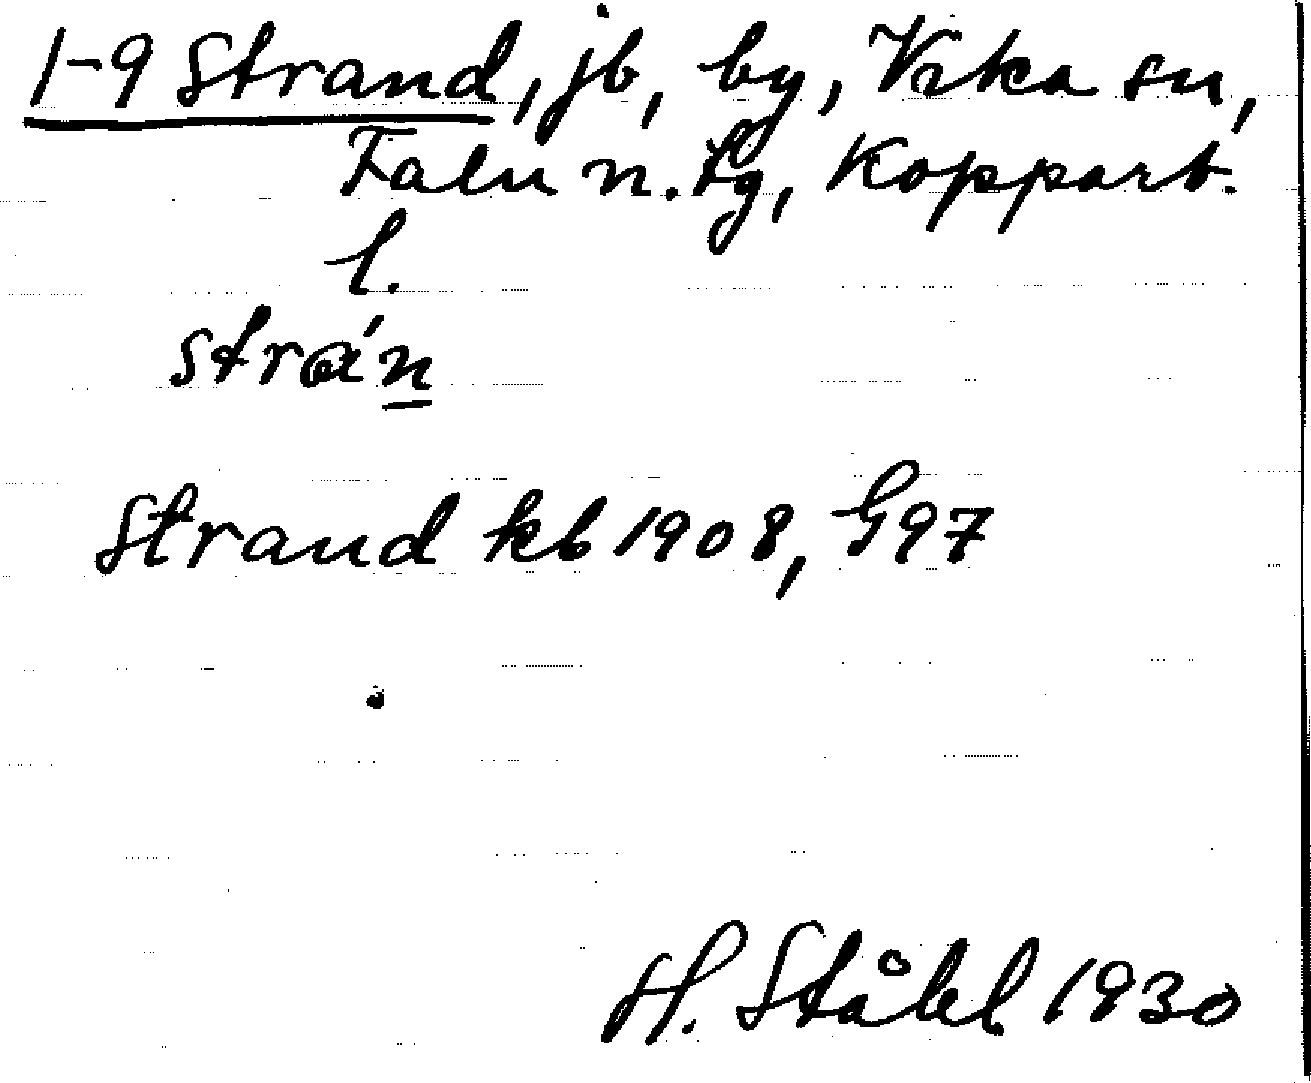 1-9 Strand, jb, by, Vika sn,
Falu n. tg, Kopparb.
l.
strán
Strand kb 1908, G97
H. Ståhl 1930